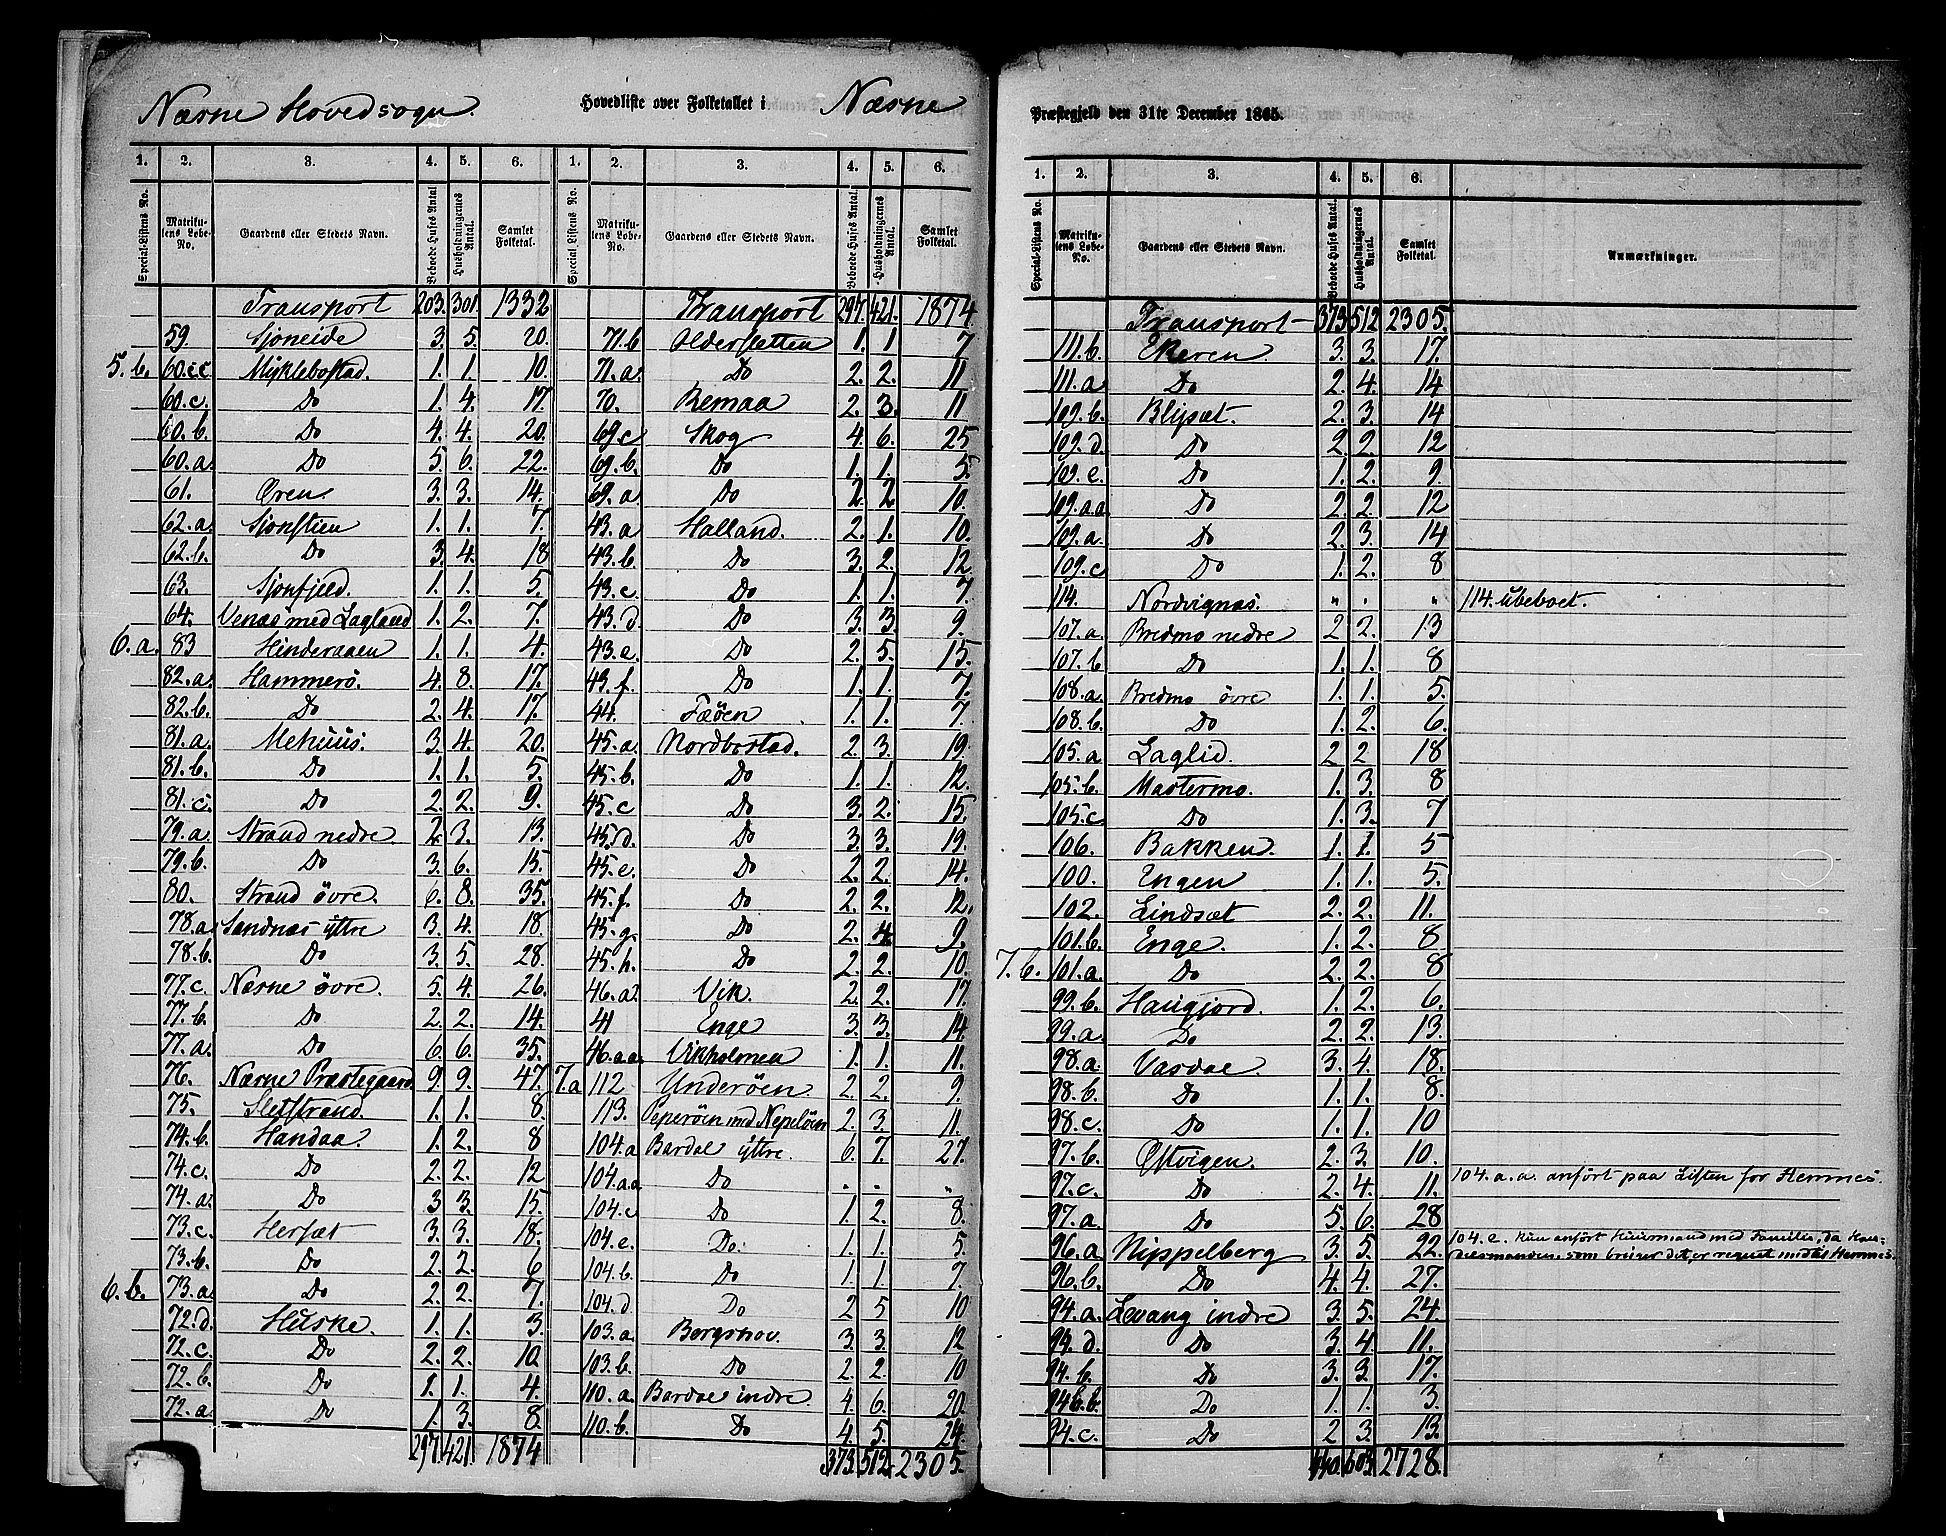 Næsne Hovedsogn. Hovedliste over Folketallet i Næsne Præstegjeld den 31te December 1865.
1. 2. 3. 4. 5. 6. 1. 2. 3. 4. 5. 6.
Special-Listens No. Matrikulens Løbe-No. Gaardens eller Stedets Navn. Beboede Huses Antal Husholdningernes Antal. Samlet Folketal. Special Listens No. Matrikulens Løbe-No. Gaardens eller Stedets Navn. Beboede Huses Antal. Husholdningernes Antal. Samlet Folketal.
Transport 203. 301. 1332
59. Sjoneide 3. 5. 20.
5.b. 60.cc Myklebostad. 1. 1. 10.
60.c. Do 1. 4. 17.
60.b. Do 4. 4. 20.
60.a. Do 5. 6. 22.
61. Øren 3. 3. 14.
62.a. Sjonstien 1. 1. 7.
62.b. Do 3. 4. 18
63. Sjonfjeld. 1. 1. 5.
64. Venæs med Lagland 1. 2. 7.
6.a. 83 Hinderaaen 1. 1. 4.
82.a. Hammerø. 4. 8. 17.
82.b. Do 2. 4. 17.
81.a. Mehuus. 3. 4. 20.
81.b. Do 1. 1. 5.
81.c. Do 2. 2. 9.
79.a. Strand nedre 2. 3. 13.
79.b. Do 3. 6. 15.
80. Strand øvre. 6. 8. 35.
78.a. Sandnæs ÿttre 3. 4. 18.
78.b. Do 3. 5. 28.
77.c. Næsne øvre. 5. 4. 26.
77.b. Do 2. 2. 14.
77.a. Do 6. 6. 35.
76. Næsne Præstegaard. 9. 9. 47.
75. Sletstrand. 1. 1. 8.
74.b. Handaa. 1. 2. 8
74.c. Do 2. 2. 12
74.a. Do 3 3. 15.
73.c. Hersæt 3. 3. 18.
73.b. Do 2. 2. 6
6.b. 73.a. Do 2. 2. 7.
72.d. Huske. 1. 1. 3.
72.c. Do 2. 2. 10.
72.b. Do 1. 1. 4.
72.a. Do 1. 3. 8.
297. 421. 1874
Transport 297. 421. 1874.
71.b Olderskatten 1. 1 7
71.a. Do 2. 2. 11
70. Remaa 2. 3. 11
69.c Skog 4. 6. 25
69.b. Do 1. 1. 5.
69.a. Do 2. 2 10.
43.a. Halland. 2. 1. 10.
43.b. Do 3. 2. 12.
43.c. Do 1. 1. 7.
43.d Do 3. 3 9.
43.e. Do 2. 5. 15.
43.f. Do 1. 1. 7.
44. Fæöen 1. 1. 7.
45.a. Nordbostad. 2. 3. 19.
45.b. Do 1. 1. 12.
45.c Do 3. 2. 15.
45.d. Do 3. 3. 19.
45.e. Do 2. 2. 14.
45.f. Do 2. 2. 12.
45.g. Do 2. 4. 9.
45.h. Do 2. 2. 10.
46.a. Vik. 2. 2. 17.
41 Enge 3. 3. 14.
46.aa. Vikholmen 1. 1. 11.
7.a 112 Underøen 2. 2. 9.
113. med 2. 3. 11.
104.a Bardal ÿttre. 6. 7. 27.
104.aa Do . . "
104.c Do 1. 2. 8.
104.e. Do. 1. 1. 5.
104.b. Do 1. 1. 7.
104.d Do 2 5 10
103.a. Bergshov. 3. 3. 12
103.b. Do 2. 2. 10
110.a. Bardal indre. 4. 6. 20.
110.b. Do 4. 5. 24.
373. 512. 2305.
1. 2. 3. 4. 5. 6.
Special-Listens No. Matrikulens Løbe-No. Gaardens eller Stedets Navn. Beboede Huses Antal. Husholdningernes Antal. Samlet Folketal. Anmærkninger.
Transport 373 512 2305.
111.b. Ekeren 3. 3. 17.
111.a Do 2. 4. 14
109.b. Blysæt. 2. 3. 14
109.d. Do 2. 2. 12
109.e. Do 1. 2. 9.
109.aa. Do 2. 2. 12
109.a. Do 2. 3. 14
109.c Do 1. 2. 8
114. Nordvignæs. " " " 114. übeboet.
107.a. Bredmo nedre 2 2. 13
107.b. Do 1. 1. 8
108.a. Bredmo øvre 1. 1. 5.
108.b. Do 1. 2. 6.
105.a Laglid. 2 2. 18
105.b. Mastermo. 1. 3. 8
105.c Do 1. 3. 7
106. Bakken. 1. 1. 5
100. Engen 1. 1. 5.
102. Lindsæt 2. 2. 11.
101.b. Enge. 1. 2. 8
7.b. 101.a. Do 2. 2. 8
99.b. Haugjord. 1. 2. 6.
99.a. Do 2. 2. 13.
98.a. Vasdal 3. 4. 18.
98.b. Do 1. 1. 8.
98.c. Do 1. 1. 10
97.b. Østvigen. 2. 3. 10.
97.c. Do 2. 4. 11. 104.a.a. anført paa Listen for Hemnes.
97.a. Do 5. 6. 28
96.a. Nippelberg 3. 5. 22. 104.e. Kun anført Huusmand med Familie, da Han-
96.b. Do 4. 4. 27. delsmanden, som bruger det, er regnet med til Hemnes.
94.a. Levang indre 3. 5. 24.
94.d. Do 3. 4. 11.
94.b. Do 3. 3. 17.
94b.b. Do 1. 1. 3.
94.c. Do 2 3. 13.
440. 603. 2728.